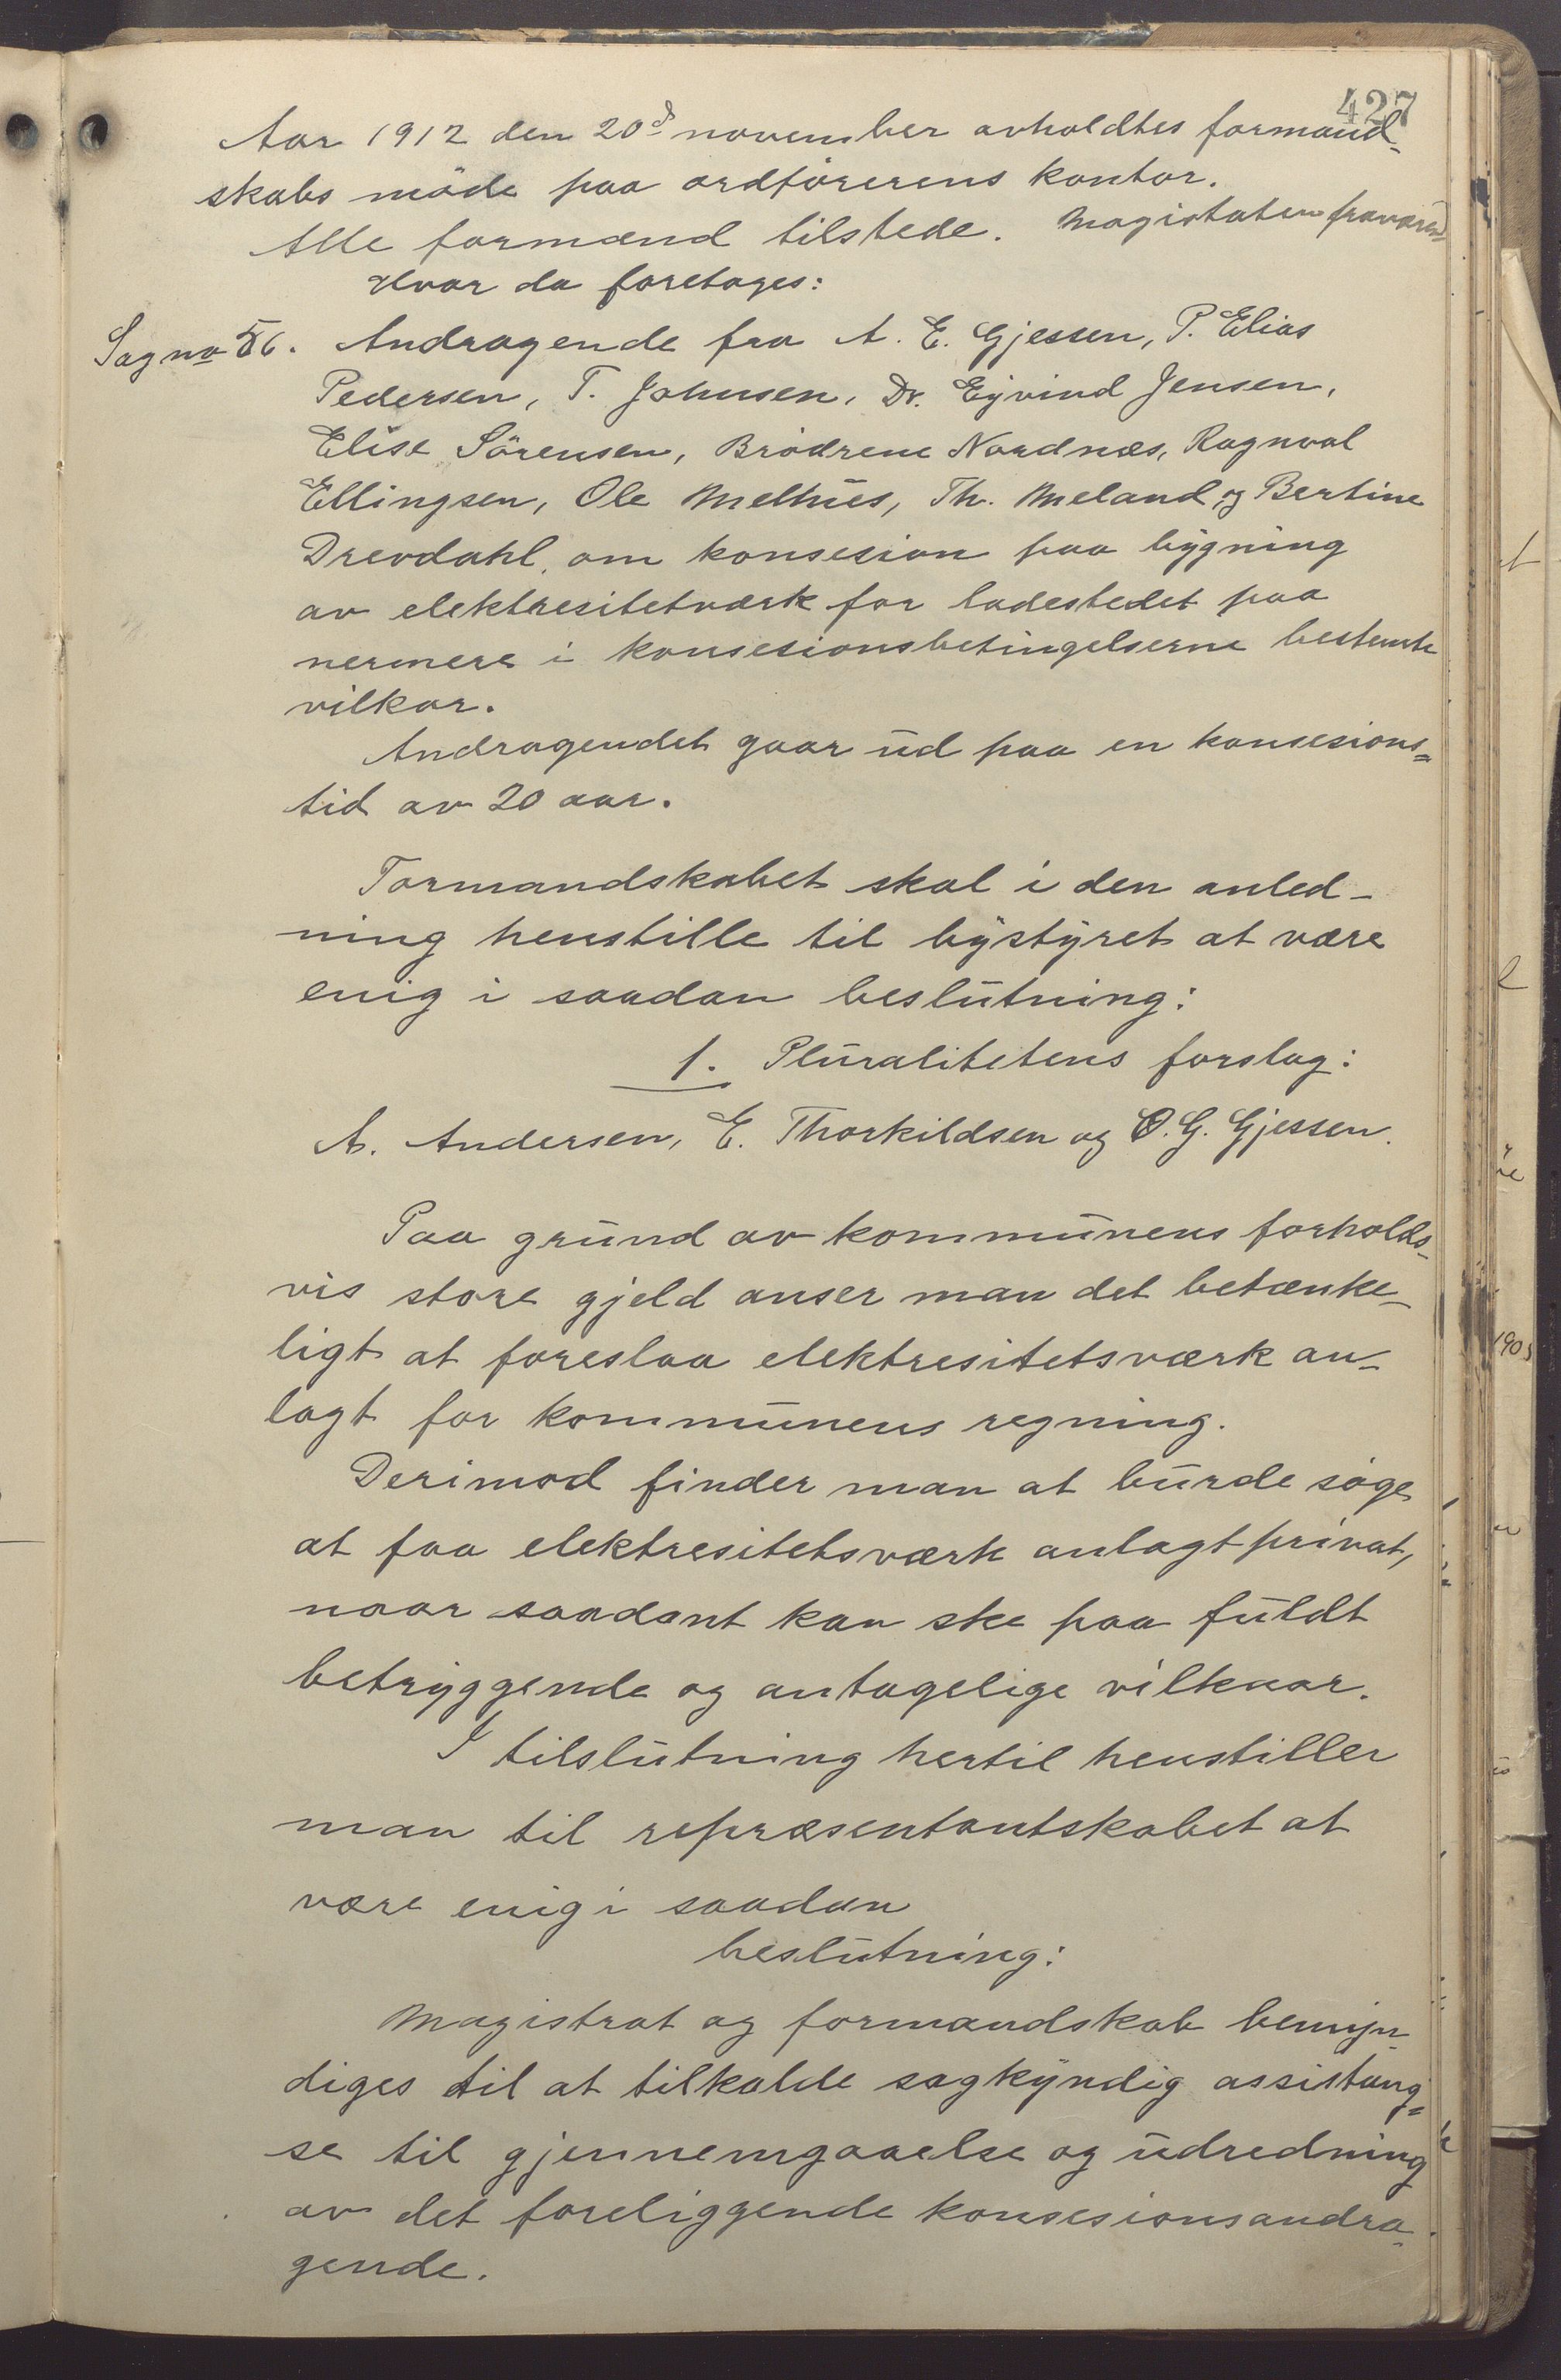 427
Aar 1912 den 20d november avholdtes formand-
skabs möde paa ordförerens kontor.
Alle formænd tilstede. Magistaten fraværen-
Hvor da foretages:
Sag no 56. Andragende fra A. E. Gjessen, P. Elias
Pedersen, T. Johnsen, Dr. Eyvind Jensen,
Elise Sörensen, Brödrene Nordnæs, Ragnval
Ellingsen, Ole Melhus, Th. Meland og Bertine
Drevdahl, om konsesion paa bygning
av elektresitetværk for ladestedet paa
nermere i konsesionsbetingelserne bestemte
vilkor.
Andragendet gaar ud paa en konsesions=
tid av 20 aar.
Formandskabet skal i den anled-
ning henstille til bystyret at være
enig i saadan beslutning:
1. Pluralitetens forslag:
A. Andersen, E. Thorkildsen og O. G. Gjessen.
Paa grund av kommunens forholds-
vis store gjeld anser man det betænke-
ligt at foreslaa elektresitetsværk an-
lagt for kommunens regning.
Derimod finder man at burde söge
at faa elektresitetsværk anlagt privat,
naar saadant kan ske paa fuldt
betryggende og antagelige vilkaar.
I tilslutning hertil henstiller
man til repræsentantskabet at
være enig i saadan
beslutning:
Magistrat og formandskab bemyn-
diges til at tilkalde sagkyndig assistang=
se til gjennemgaaelse og udredning
av det foreliggende konsesionsandra-
gende.
1905